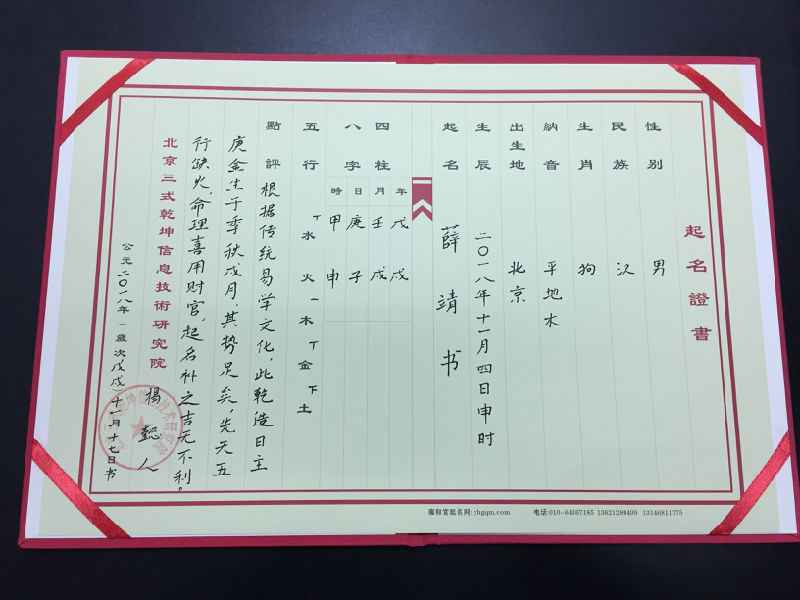 起名證書
性別 男
民族 汉
生肖 狗
納音 平地木
出生地 北京
生辰 二〇一八年十一月四日申时
起名 薛靖书
四柱八字
年 戊戌
月 壬戌
日 庚子
時 甲申
五行 丅水 火 一木 丅金 下土
點評 根据传统易学文化,此乾造日主
庚金生于季秋戌月,其势足矣,先天五
行缺火,命理喜用财官,起名补之吉无不利。
北京三式乾坤信息技術研究院 楊懿人
公元二〇一八年(歲次戊戌)十一月十七日书
雍和宫起名网:yhgqm.com 电话:010-64067185 13146811775